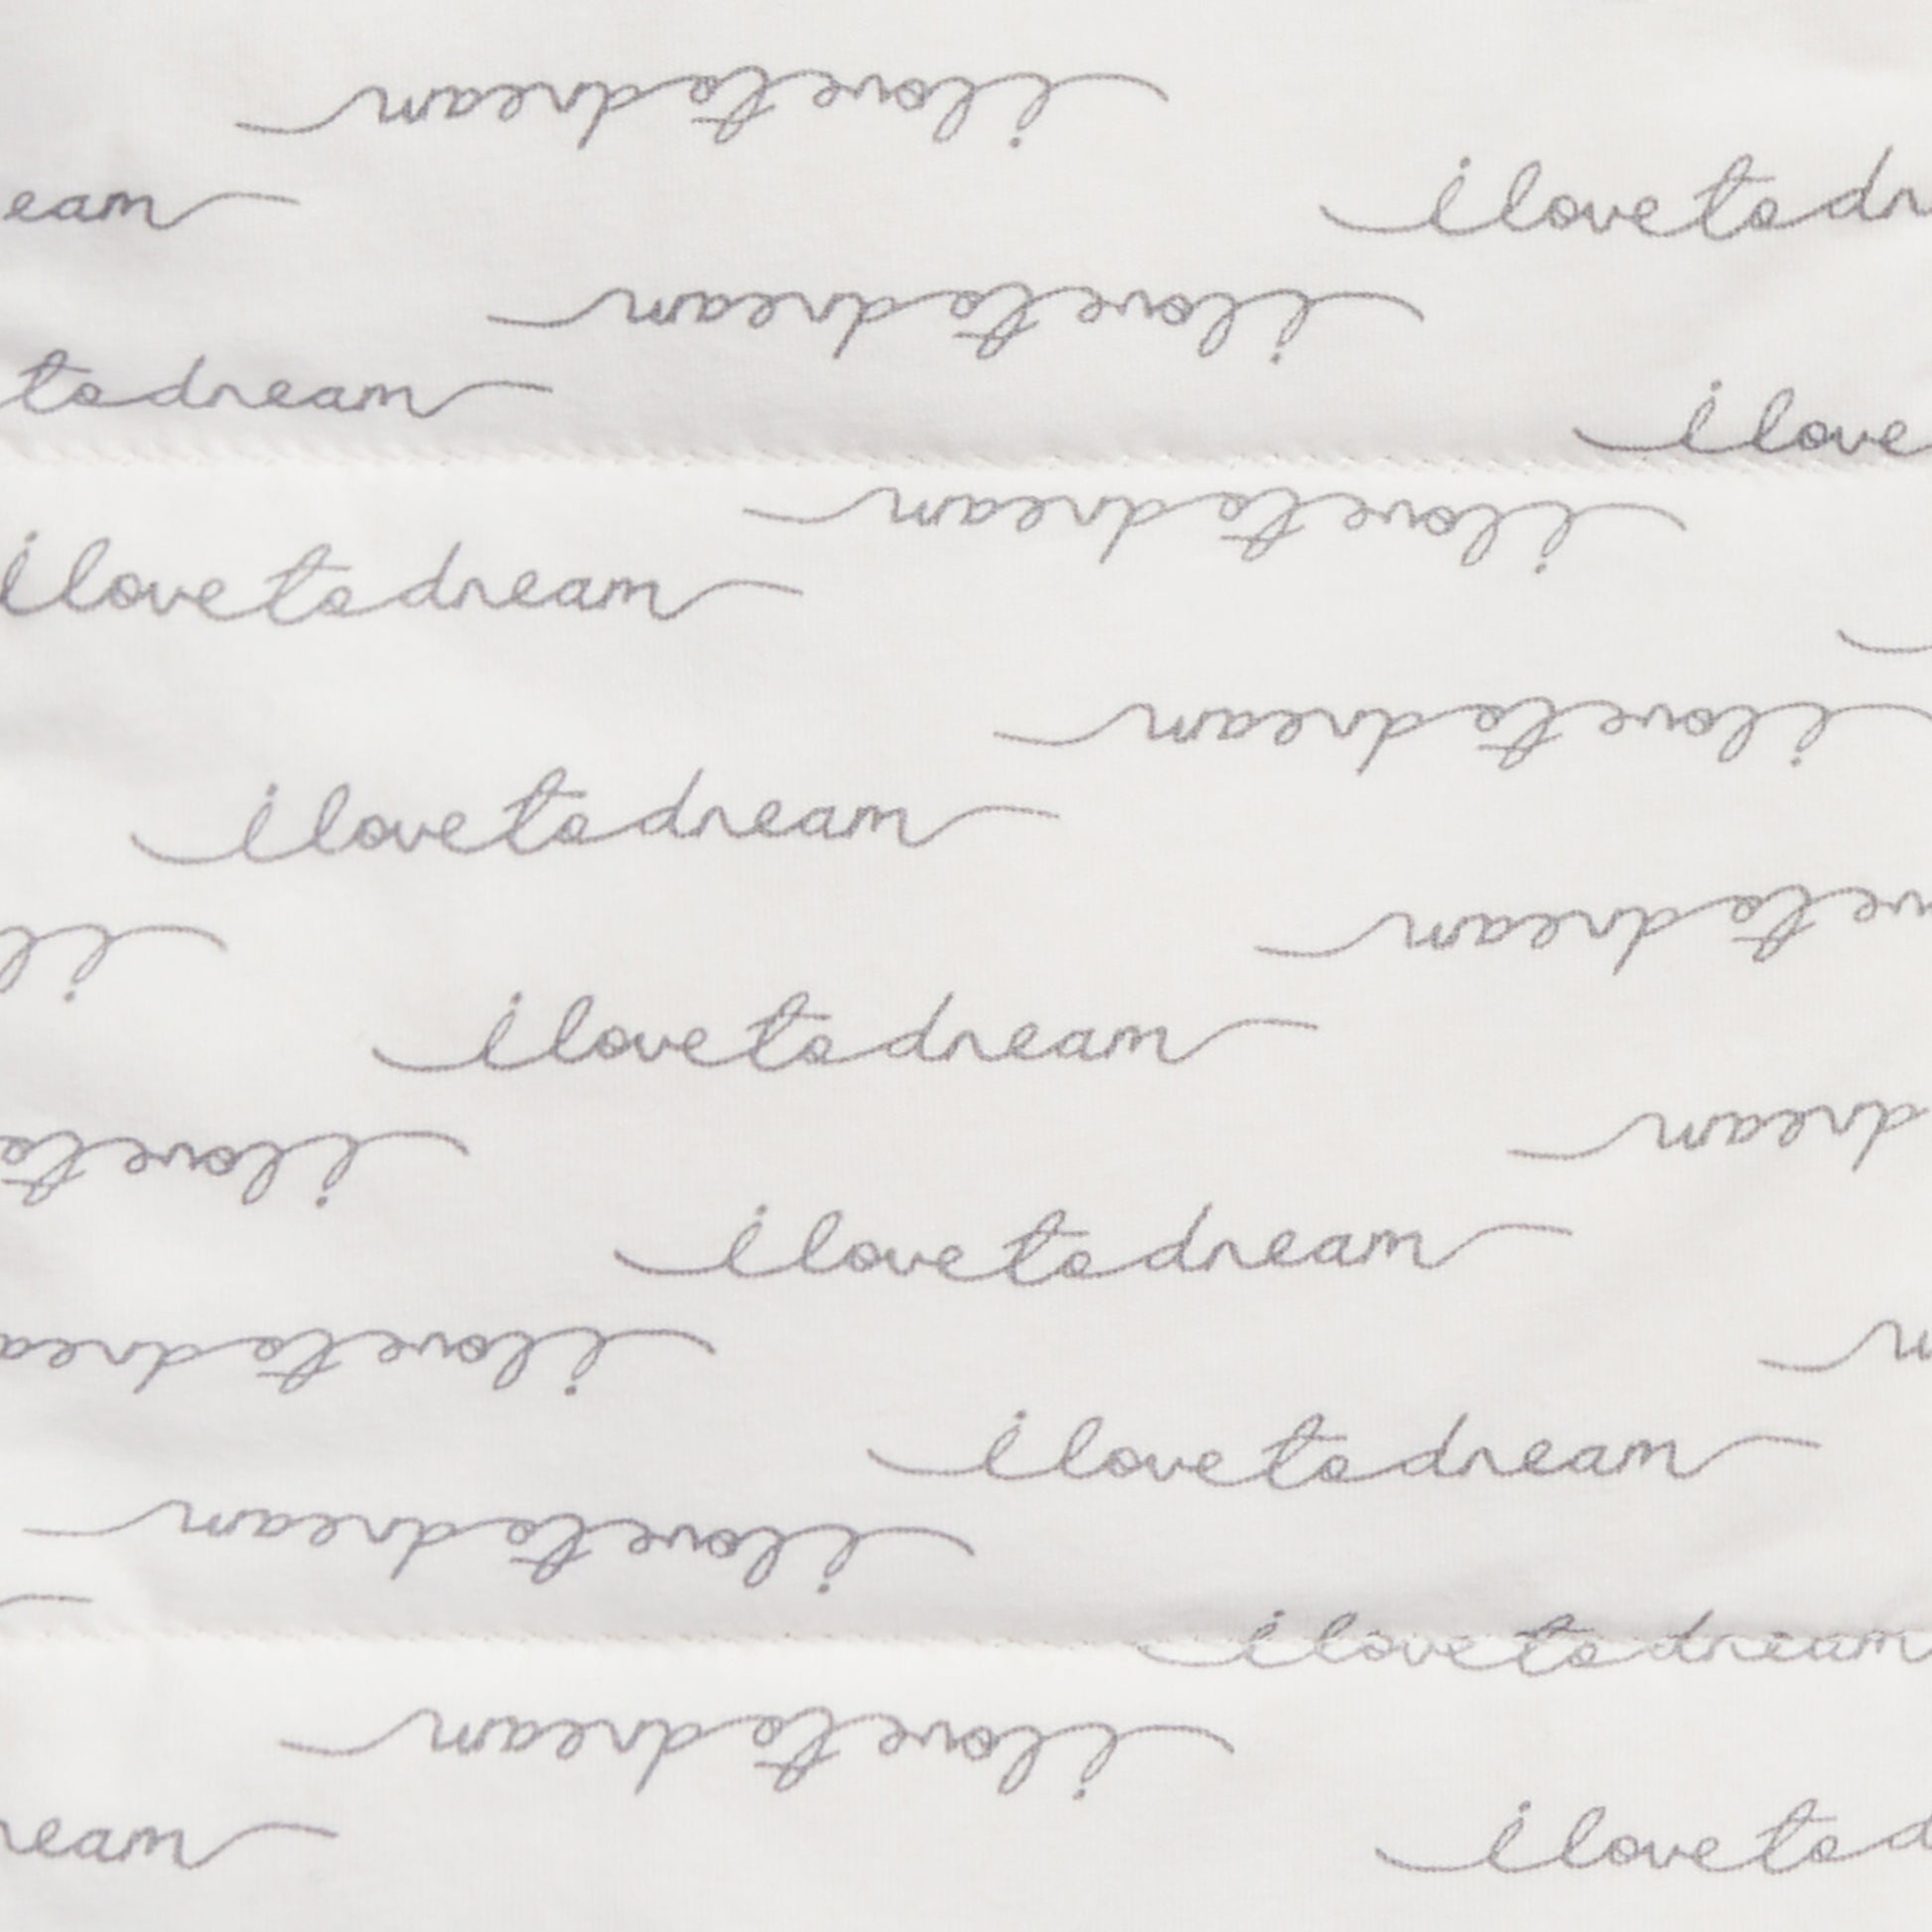 i love to dream
eam i love to dr
i love to dream
to dream i love
i love to dream
i love to dream
i love to dream
i love to dream
ve to dream
i l
i love to dream
dream
i love to
i love to dream
m
i love to drea
i love to dream
i love to dream
i love to dream
i love to dream
ream i love to d